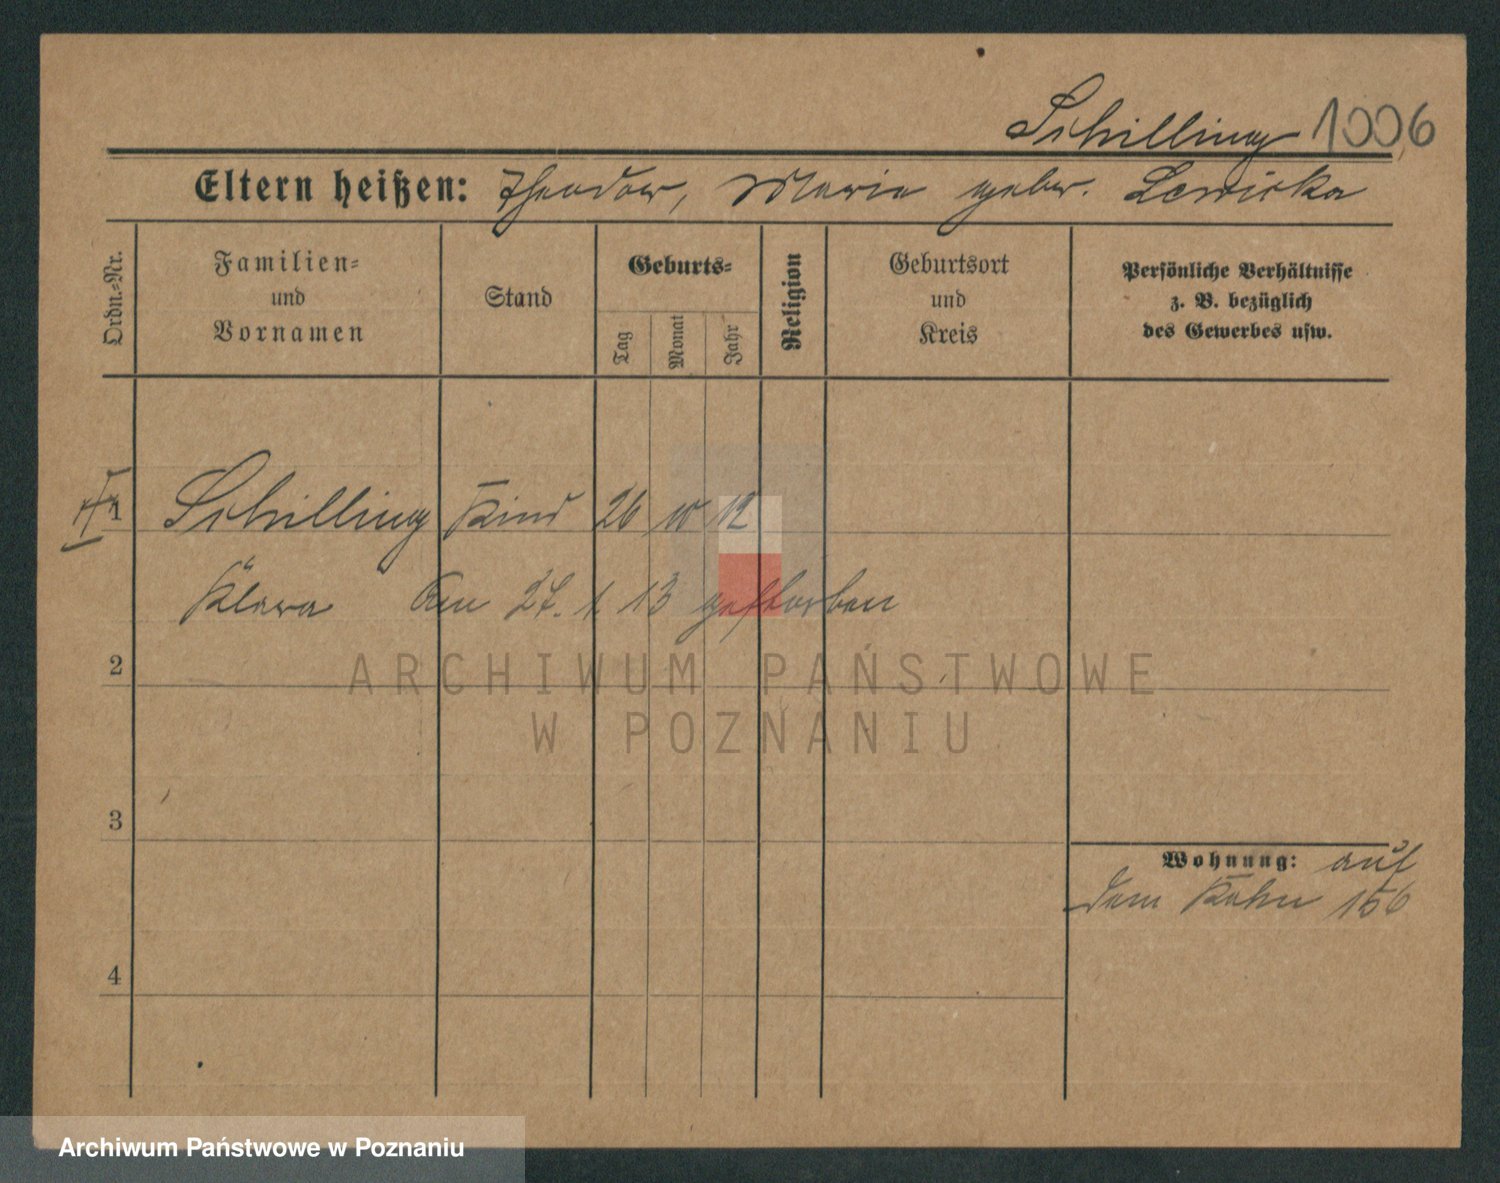 Schilling 1006
Eltern heißen: Theodor, Maria gebor. Lewicka
Ordn.-Nr.
Familien-
und
Vornamen
Stand
Geburts-
Tag
Monat
Jahr
Religion
Geburtsort
und
Kreis
Persönliche Verhältnisse
z. B. bezüglich
des Gewerbes usw.
1 Schilling Kind 26 10 12
Klara Am 27. 1. 13 gestorben
2
ARCHIWUM PAŃSTWOWE
W POZNANIU
3
Wohnung: auf
dem Kahn 156
4
Archiwum Państwowe w Poznaniu